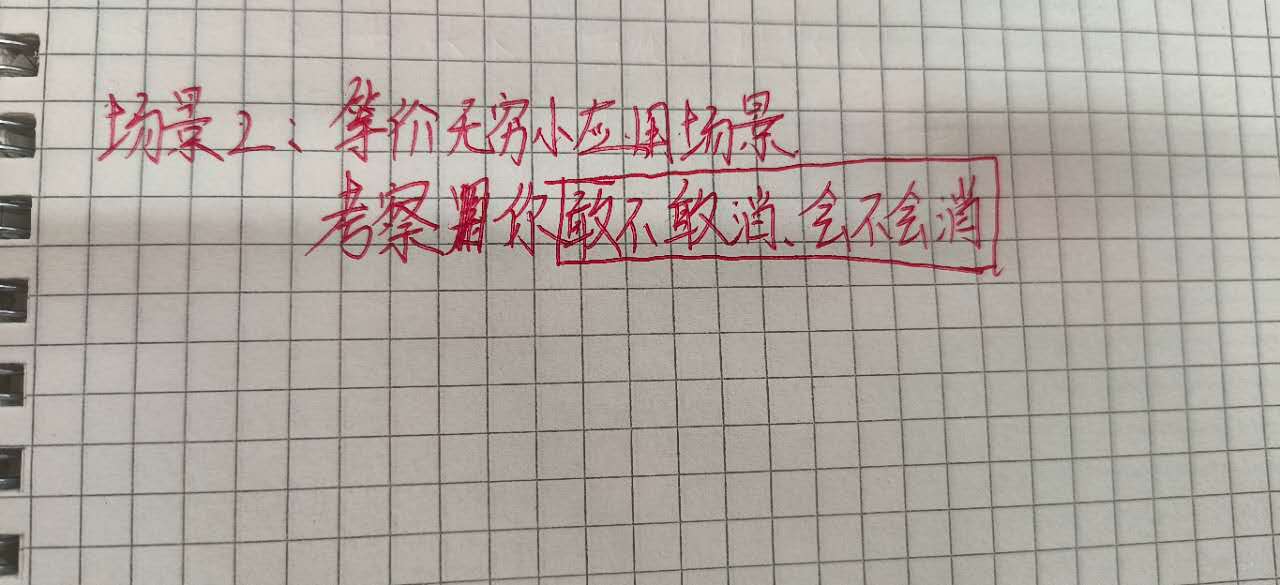 场景2：等价无穷小应用场景
考察你敢不敢消、会不会消